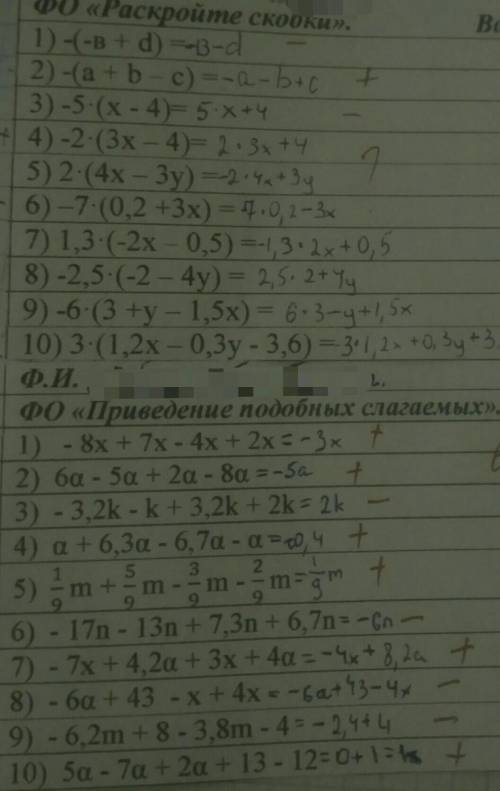 ФО «Раскройте скобки». Ва
1) -(-в + d) =-в-d −
2) -(a + b – c) =-a-b+c +
3) -5·(x - 4)= 5·x+4 −
4) -2·(3x – 4)= 2·3x+4
5) 2·(4x – 3y) =-2·4x+3y
6) –7·(0,2 +3x) = 7·0,2-3x
7) 1,3·(-2x – 0,5) =-1,3·2x+0,5
8) -2,5·(-2 – 4y) = 2,5·2+4y
9) -6·(3 +y – 1,5x) = 6·3-y+1,5x
10) 3·(1,2x – 0,3y - 3,6) =3·1,2x+0,3y+3
Ф.И.
ФО «Приведение подобных слагаемых».
1) - 8x + 7x - 4x + 2x=-3x +
2) 6α - 5α + 2α - 8α =-5a +
3) - 3,2k - k + 3,2k + 2k= 2k −
4) α + 6,3α - 6,7α - α =-0,4 +
5) 1/9 m + 5/9 m - 3/9 m - 2/9 m= 1/9 m +
6) - 17n - 13n + 7,3n + 6,7n= -6n −
7) - 7x + 4,2α + 3x + 4α =-4x+8,2a +
8) - 6α + 43 - x + 4x =-6a+43-4x −
9) - 6,2m + 8 - 3,8m - 4 =-2,4+4 −
10) 5α - 7α + 2α + 13 - 12=0+1= +